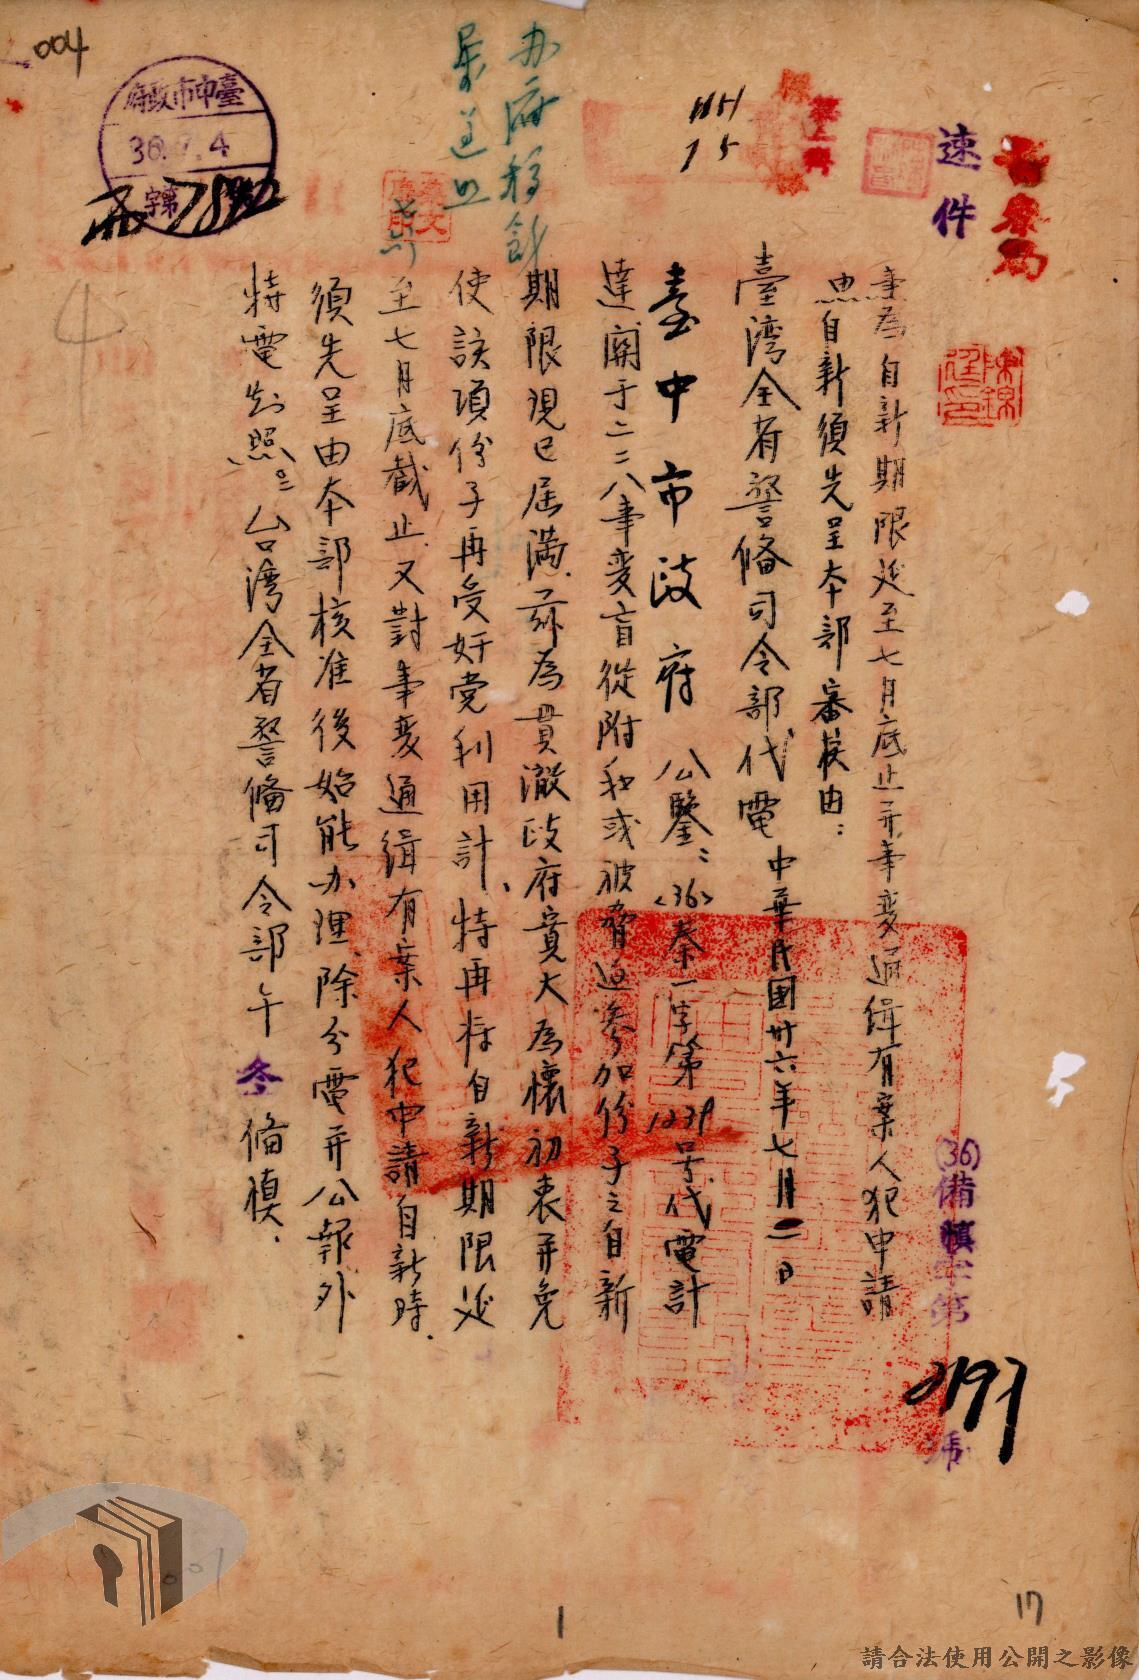 004
臺中市政府
36.7.4
字第
7890
速件
事為自新期限延至七月底止并事変通緝有案人犯申請
自新須先呈本部審核由：
臺湾全省警備司令部代電 中華民國卅六年七月二日
(36)備慎字第
0197
號
臺中市政府公鑒：(36)泰一字第1239号代電計
達關于二二八事変盲從附和或被脅迫參加份子之自新
期限現已屆滿茲為貫澈政府寬大為懷初衷并免
使該項份子再受奸党利用計、特再将自新期限延
至七月底截止、又對事変通緝有案人犯申請自新時、
須先呈由本部核准後始能办理、除分電并公報外
特電知照。台湾全省警備司令部午冬備慎、
1
17
請合法使用公開之影像